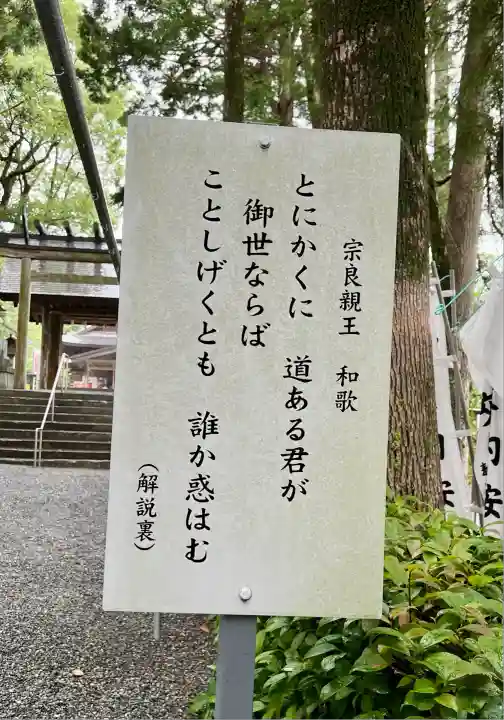 宗良親王　和歌
とにかくに　道ある君が
御世ならば
ことしげくとも　誰か惑はむ
（解説裏）
安